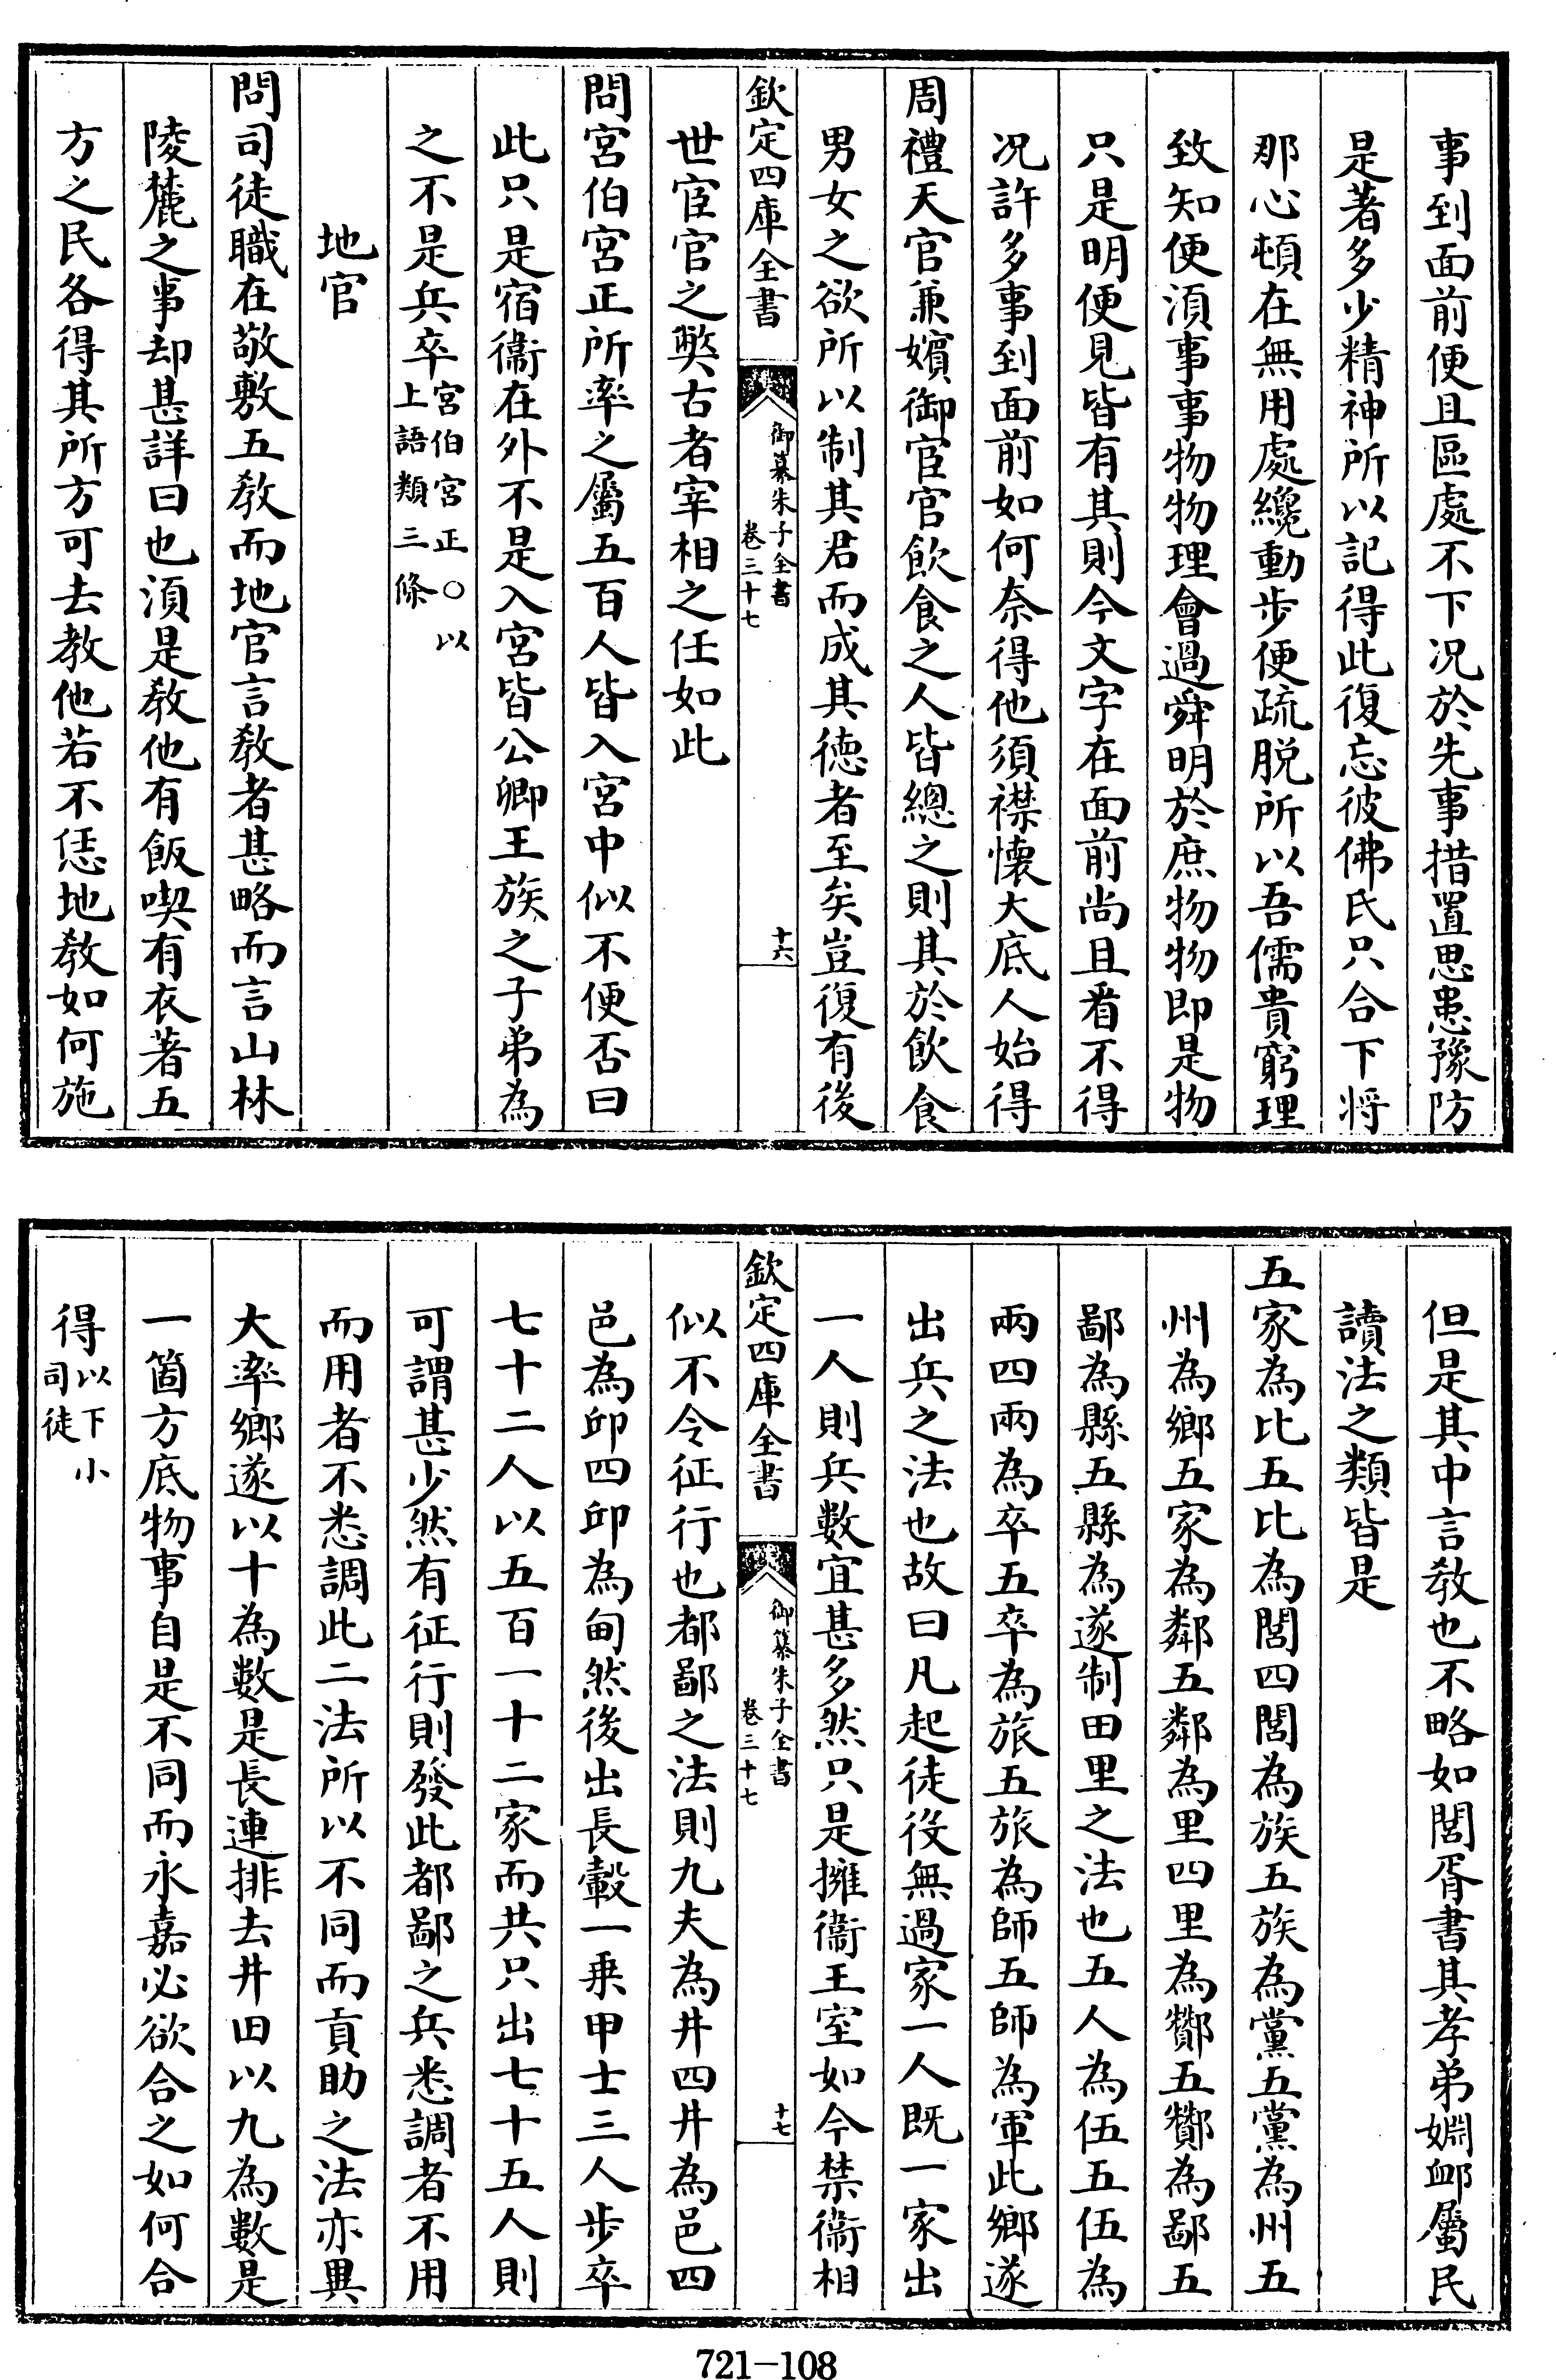 事到面前便且區處不下况於先事措置思患豫防
是著多少精神所以記得此復忘彼佛氏只合下將
那心頓在無用處纔動步便疏脱所以吾儒貴窮理
致知便湏事事物物理會過舜明於庶物物即是物
只是明便見皆有其則今文字在面前尚且看不得
况許多事到面前如何奈得他須襟懐大底人始得
周禮天官兼嬪御宦官飲食之人皆總之則其於飲食
男女之欲所以制其君而成其徳者至矣豈復有後
欽定四庫全書
御纂朱子全書
卷三十七
十六
世宦官之弊古者宰相之任如此
問宮伯宮正所率之屬五百人皆入宮中似不便否曰
此只是宿衞在外不是入宮皆公卿王族之子弟為
之不是兵卒宮伯宮正○以上語類三條
地官
問司徒職在敬敷五教而地官言教者甚略而言山林
陵麓之事却甚詳曰也湏是教他有飯喫有衣著五
方之民各得其所方可去教他若不恁地教如何施
但是其中言教也不略如閭胥書其孝弟婣䘏屬民
讀法之類皆是
五家為比五比為閭四閭為族五族為黨五黨為州五
州為鄉五家為鄰五鄰為里四里為酇五酇為鄙五
鄙為縣五縣為遂制田里之法也五人為伍五伍為
兩四兩為卒五卒為旅五旅為師五師為軍此鄉遂
出兵之法也故曰凡起徒役無過家一人既一家出
一人則兵數宜甚多然只是擁衞王室如今禁衞相
欽定四庫全書
御纂朱子全書
卷三十七
十七
似不令征行也都鄙之法則九夫為井四井為邑四
邑為邱四邱為甸然後出長轂一乗甲士三人步卒
七十二人以五百一十二家而共只出七十五人則
可謂甚少然有征行則發此都鄙之兵悉調者不用
而用者不悉調此二法所以不同而貢助之法亦異
大率鄉遂以十為數是長連排去井田以九為數是
一箇方底物事自是不同而永嘉必欲合之如何合
得以下小司徒
721-108